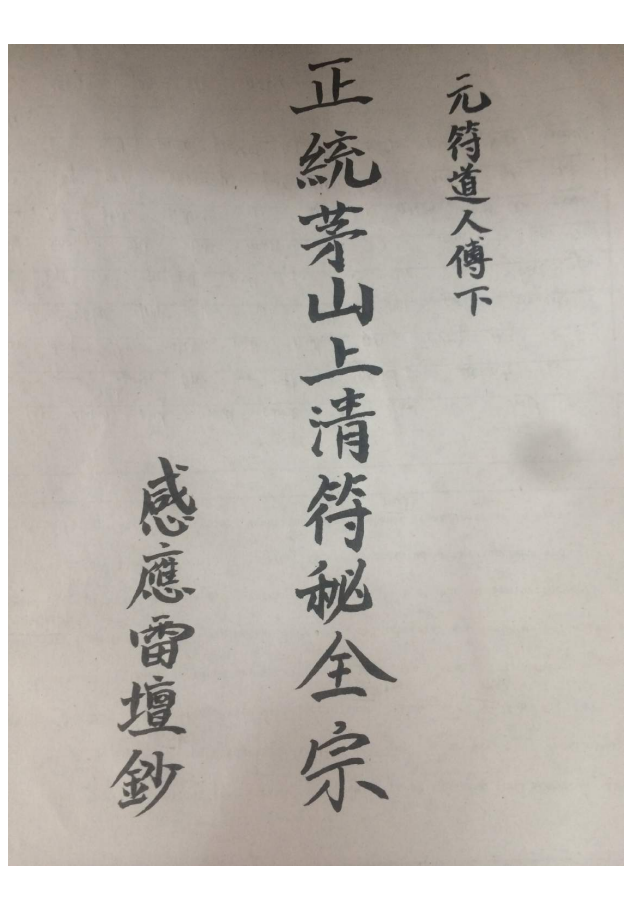 元符道人傅下
正統茅山上清符秘全宗
感應雷壇鈔